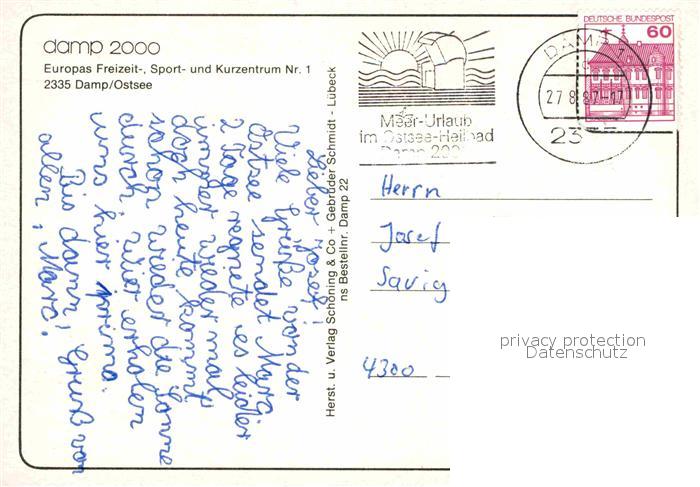 damp 2000
Europas Freizeit-, Sport- und Kurzentrum Nr. 1
2335 Damp/Ostsee
Lieber Josef!
Viele Grüße von der
Ostsee sendet Marc
2 Tage regnete es leider
immer wieder mal,
doch heute kommt
schon wieder die Sonne
durch. Wir erholen
uns hier prima.
Bis dann, Gruß von
allen, Marc!
Herst. u. Verlag Schöning & Co + Gebrüder Schmidt - Lübeck
ns Bestellnr. Damp 22
Meer-Urlaub
im Ostsee-Heilbad
Damp 2000
DAMP 1
27.8.87-17
2335
DEUTSCHE BUNDESPOST
60
Herrn
Josef
Savig
4300
privacy protection
Datenschutz